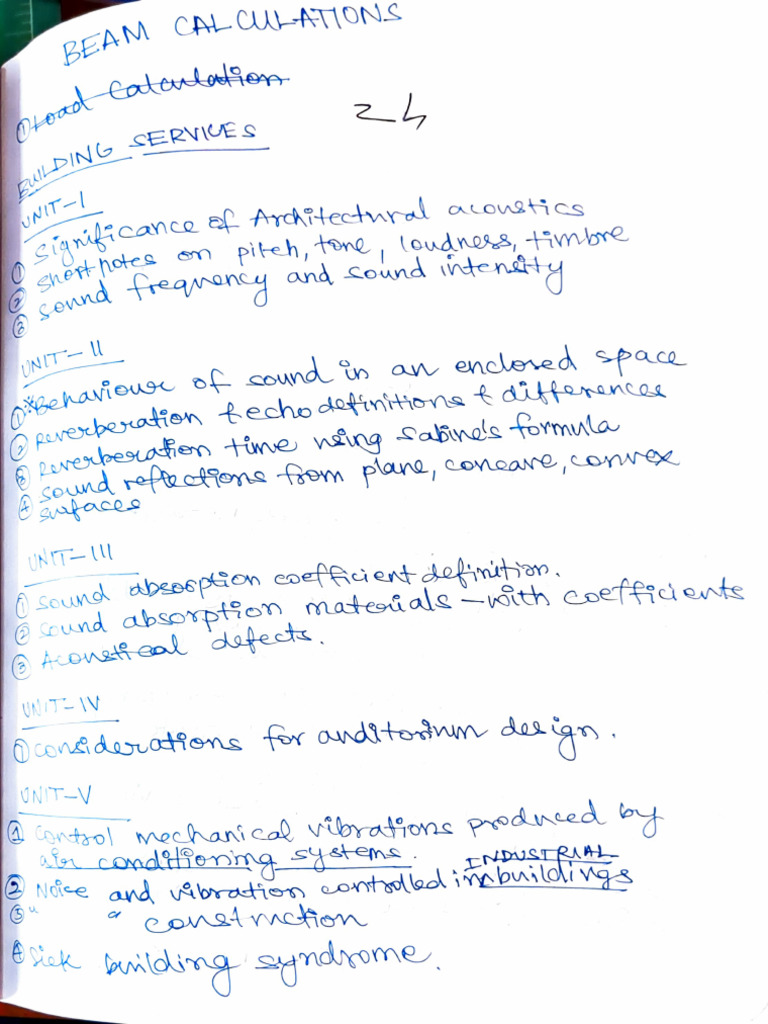 BEAM CALCULATIONS
① Load Calculation
24
BUILDING SERVICES
UNIT-I
① Significance of Architectural acoustics
② Short notes on pitch, tone, loudness, timbre
③ Sound frequency and sound intensity
UNIT-II
① *Behaviour of sound in an enclosed space
② Reverberation & echo definitions & differences
③ Reverberation time using Sabine's formula
④ Sound reflections from plane, concave, convex
surfaces
UNIT-III
① Sound absorption coefficient definition.
② Sound absorption materials - with coefficients
③ Acoustical defects.
UNIT-IV
① Considerations for auditorium design.
UNIT-V
① Control mechanical vibrations produced by
air conditioning systems.
② Noise and vibration controlled in INDUSTRIAL buildings
③ " " construction
④ Sick building syndrome.